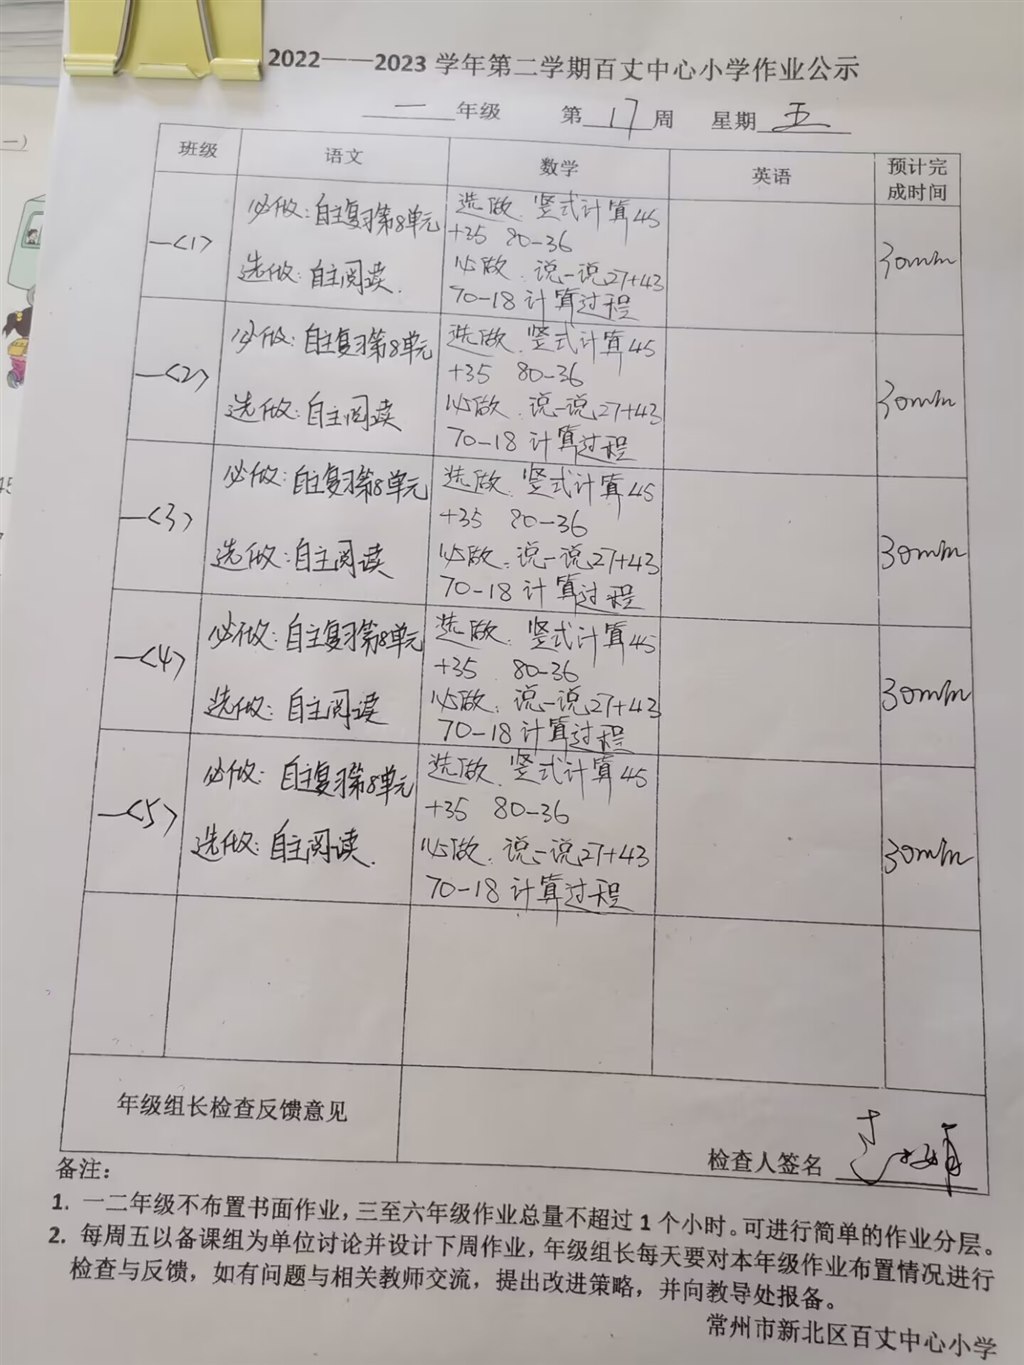 2022——2023 学年第二学期百丈中心小学作业公示
一 年级 第 17 周 星期 五
班级 语文 数学 英语 预计完成时间
一<1>
必做：自主复习第8单元
选做：自主阅读.
选做. 竖式计算45
+35 80-36
必做. 说一说27+43
70-18 计算过程
30min
一<2>
必做：自主复习第8单元
选做：自主阅读
选做. 竖式计算45
+35 80-36
必做. 说一说27+43
70-18 计算过程
30min
一<3>
必做：自主复习第8单元
选做：自主阅读
选做. 竖式计算45
+35 80-36
必做. 说一说27+43
70-18 计算过程
30min
一<4>
必做：自主复习第8单元
选做：自主阅读
选做. 竖式计算45
+35 80-36
必做. 说一说27+43
70-18 计算过程
30min
一<5>
必做：自主复习第8单元
选做：自主阅读.
选做. 竖式计算45
+35 80-36
必做. 说一说27+43
70-18 计算过程
30min
年级组长检查反馈意见
检查人签名
备注：
1. 一二年级不布置书面作业，三至六年级作业总量不超过 1 个小时。可进行简单的作业分层。
2. 每周五以备课组为单位讨论并设计下周作业，年级组长每天要对本年级作业布置情况进行
检查与反馈，如有问题与相关教师交流，提出改进策略，并向教导处报备。
常州市新北区百丈中心小学
一）